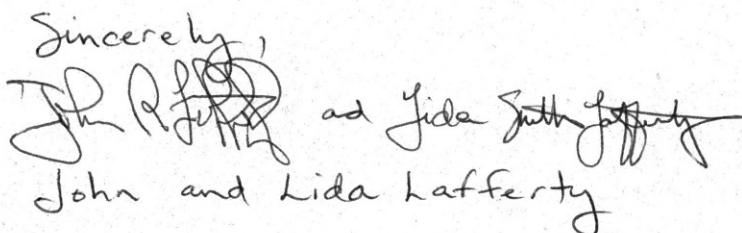 Sincerely,
John R Lafferty ad Lida Smith Lafferty
John and Lida Lafferty